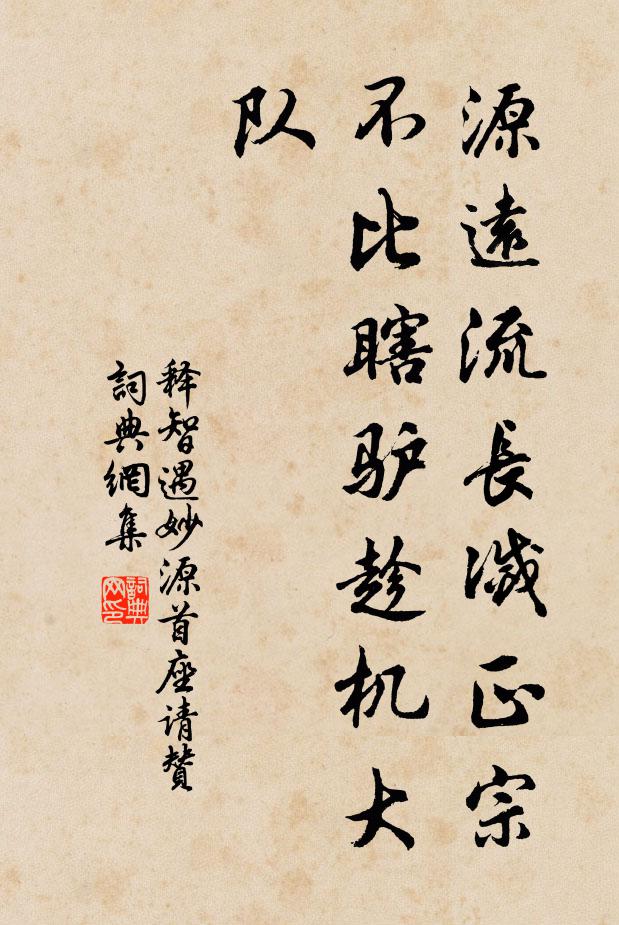 源遠流長滅正宗
不比瞎驴趁机大
队
释智遇妙源首座请赞
詞典網集
詞典网印